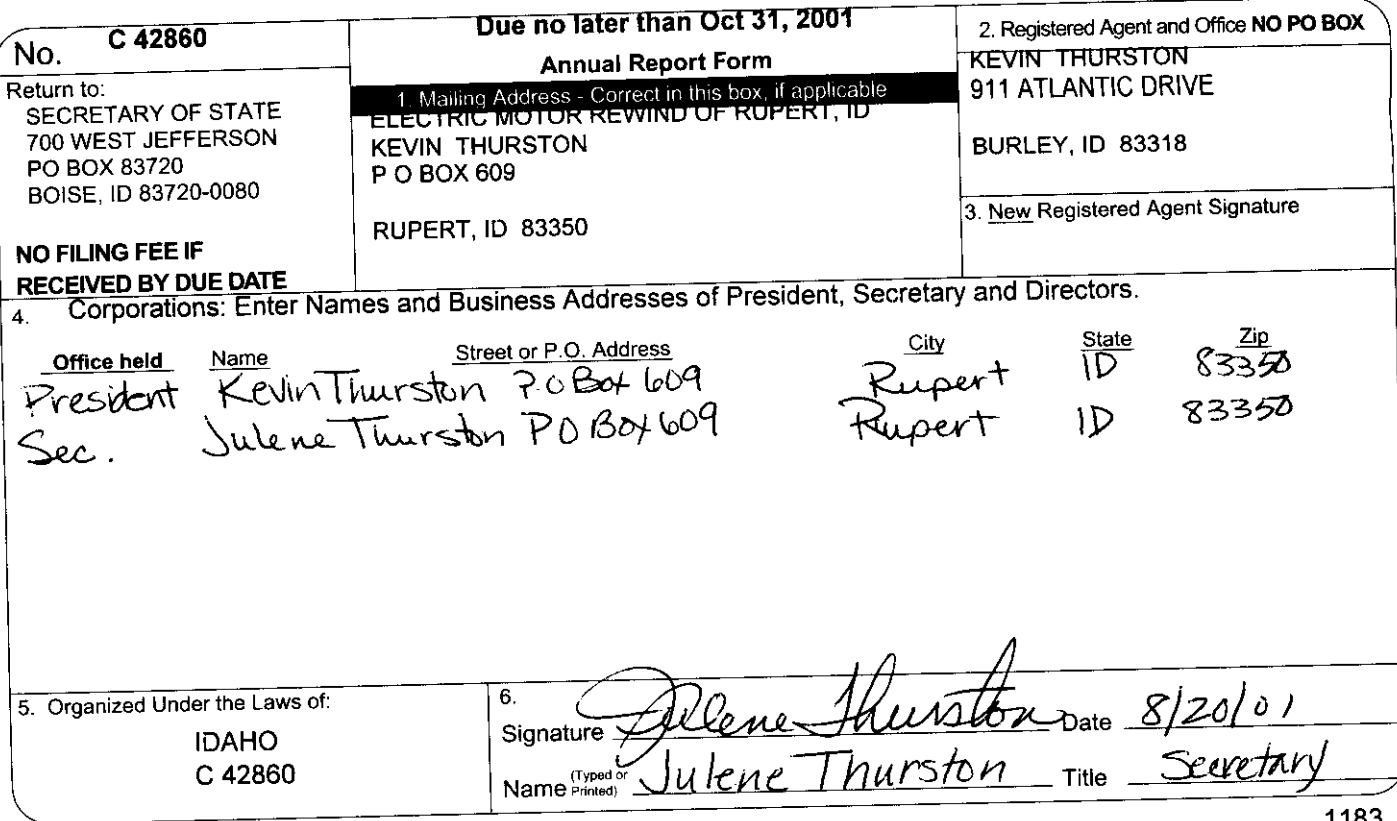 No. C 42860
Return to:
SECRETARY OF STATE
700 WEST JEFFERSON
PO BOX 83720
BOISE, ID 83720-0080
NO FILING FEE IF
RECEIVED BY DUE DATE
Due no later than Oct 31, 2001
Annual Report Form
1. Mailing Address - Correct in this box, if applicable
ELECTRIC MOTOR REWIND OF RUPERT, ID
KEVIN THURSTON
P O BOX 609
RUPERT, ID 83350
2. Registered Agent and Office NO PO BOX
KEVIN THURSTON
911 ATLANTIC DRIVE
BURLEY, ID 83318
3. New Registered Agent Signature
4. Corporations: Enter Names and Business Addresses of President, Secretary and Directors.
Office held Name Street or P.O. Address City State Zip
President Kevin Thurston P.O Box 609 Rupert ID 83350
Sec. Julene Thurston PO Box 609 Rupert ID 83350
5. Organized Under the Laws of:
IDAHO
C 42860
6.
Signature Julene Thurston Date 8/20/01
Name (Typed or Printed) Julene Thurston Title Secretary
1183